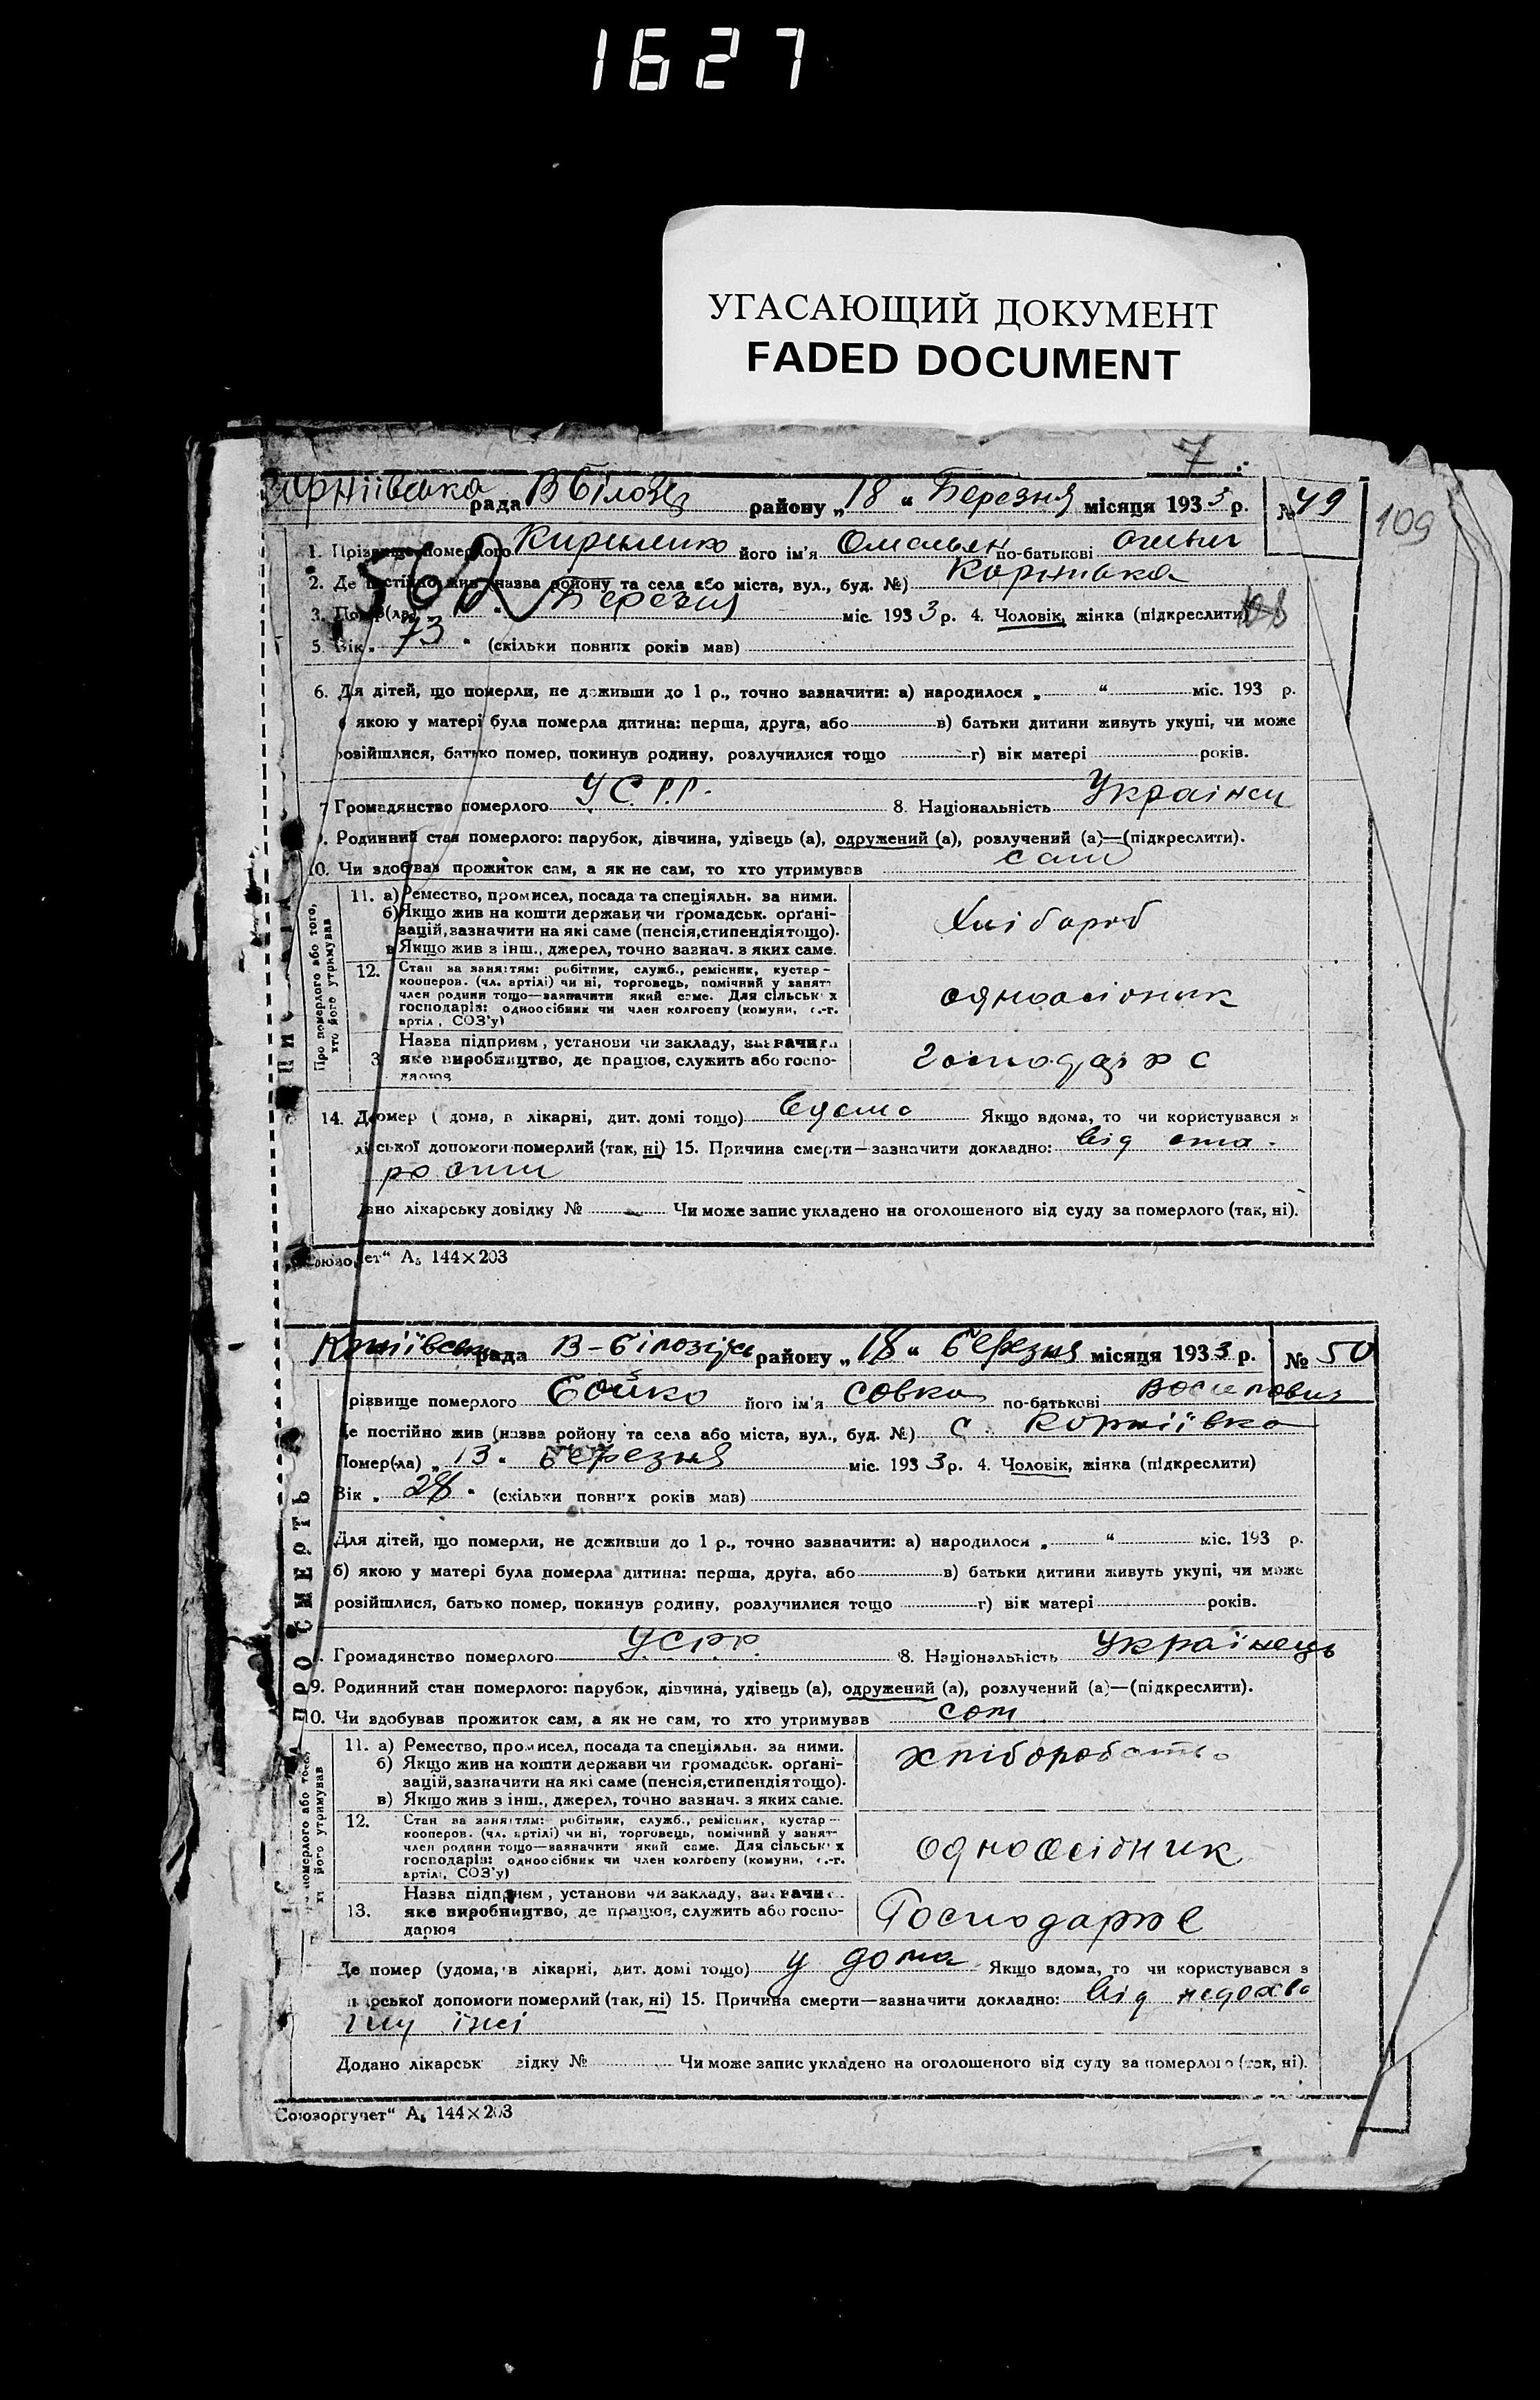 1627
УГАСАЮЩИЙ ДОКУМЕНТ
FADED DOCUMENT
7
рада В Білозір району „ 18 “ Березня місяця 1933 р. № 49
109
1. Прізвище померлого Кириленко його ім'я Омельян по-батькові
2. Де постійно жив (назва району та села або міста, вул., буд. №) Корніївка
3. Помер(ла) „ “ Березня міс. 1933 р. 4. Чоловік, жінка (підкреслити)
5. Вік „ 73 “ (скільки повних років мав)
6. Для дітей, що померли, не доживши до 1 р., точно зазначити: а) народилося „ “ міс. 193 р.
якою у матері була померла дитина: перша, друга, або в) батьки дитини живуть укупі, чи може
розійшлися, батько помер, покинув родину, розлучилися тощо г) вік матері років.
7 Громадянство померлого УСРР. 8. Національність
9. Родинний стан померлого: парубок, дівчина, удівець (а), одружений (а), розлучений (а)—(підкреслити).
10. Чи здобував прожиток сам, а як не сам, то хто утримував сам
Про померлого або того,
хто його утримував
11. а) Ремество, промисел, посада та спеціяльн. за ними.
б) Якщо жив на кошти держави чи громадськ. органі-
зацій, зазначити на які саме (пенсія, стипендія тощо).
в Якщо жив з інш., джерел, точно зазнач. з яких саме.
Хлібороб
12. Стан за заняттям: робітник, служб., ремісник, кустар—
кооперов. (чл. артілі) чи ні, торговець, помічний у занят
член родини тощо—зазначити який саме. Для сільськ х
господарів: одноосібник чи член колгоспу (комуни, с.-г.
артіл, СОЗ'у)
одноосібник
3 Назва підприєм, установи чи закладу, зазначити
яке виробництво, де працює, служить або госпо-
дарює
господарює
14. Де помер ( дома, в лікарні, дит. домі тощо) вдома Якщо вдома, то чи користувався з
лікарської допомоги померлий (так, ні) 15. Причина смерти—зазначити докладно: від ста-
рости
Додано лікарську довідку № Чи може запис укладено на оголошеного від суду за померлого (так, ні).
Союзоргучет“ А₅ 144×203
рада В-Білозір району „ 18 “ березня місяця 1933 р. № 50
Прізвище померлого Бойко його ім'я Совка по-батькові Восипович
Де постійно жив (назва району та села або міста, вул., буд. №) С. Корніївка
Помер(ла) „ 13 “ березня міс. 1933 р. 4. Чоловік, жінка (підкреслити)
Вік „ 28 “ (скільки повних років мав)
Для дітей, що померли, не доживши до 1 р., точно зазначити: а) народилося „ “ міс. 193 р.
б) якою у матері була померла дитина: перша, друга, або в) батьки дитини живуть укупі, чи може
розійшлися, батько помер, покинув родину, розлучилися тощо г) вік матері років.
Громадянство померлого УСРР. 8. Національність Українець
9. Родинний стан померлого: парубок, дівчина, удівець (а), одружений (а), розлучений (а)—(підкреслити).
10. Чи здобував прожиток сам, а як не сам, то хто утримував сам
ПРО СМЕРТЬ
померлого або того,
хто його утримував
11. а) Ремество, промисел, посада та спеціяльн. за ними.
б) Якщо жив на кошти держави чи громадськ. органі-
зацій, зазначити на які саме (пенсія, стипендія тощо).
в) Якщо жив з інш., джерел, точно зазнач. з яких саме.
хліборобство
12. Стан за заняттям: робітник, служб., ремісник, кустар—
кооперов. (чл. артілі) чи ні, торговець, помічний у занят
член родини тощо—зазначити який саме. Для сільськ х
господарів: одноосібник чи член колгоспу (комуни, с.-г.
артіл, СОЗ'у)
одноосібник
13. Назва підприєм, установи чи закладу, зазначи
яке виробництво, де працює, служить або госпо-
дарює
Господарює
Де помер (удома, в лікарні, дит. домі тощо) у дома Якщо вдома, то чи користувався з
лікарської допомоги померлий (так, ні) 15. Причина смерти—зазначити докладно: від недохва
їжі
Додано лікарськ відку № Чи може запис укладено на оголошеного від суду за померлого (так, ні).
Союзоргучет“ А₅ 144×203